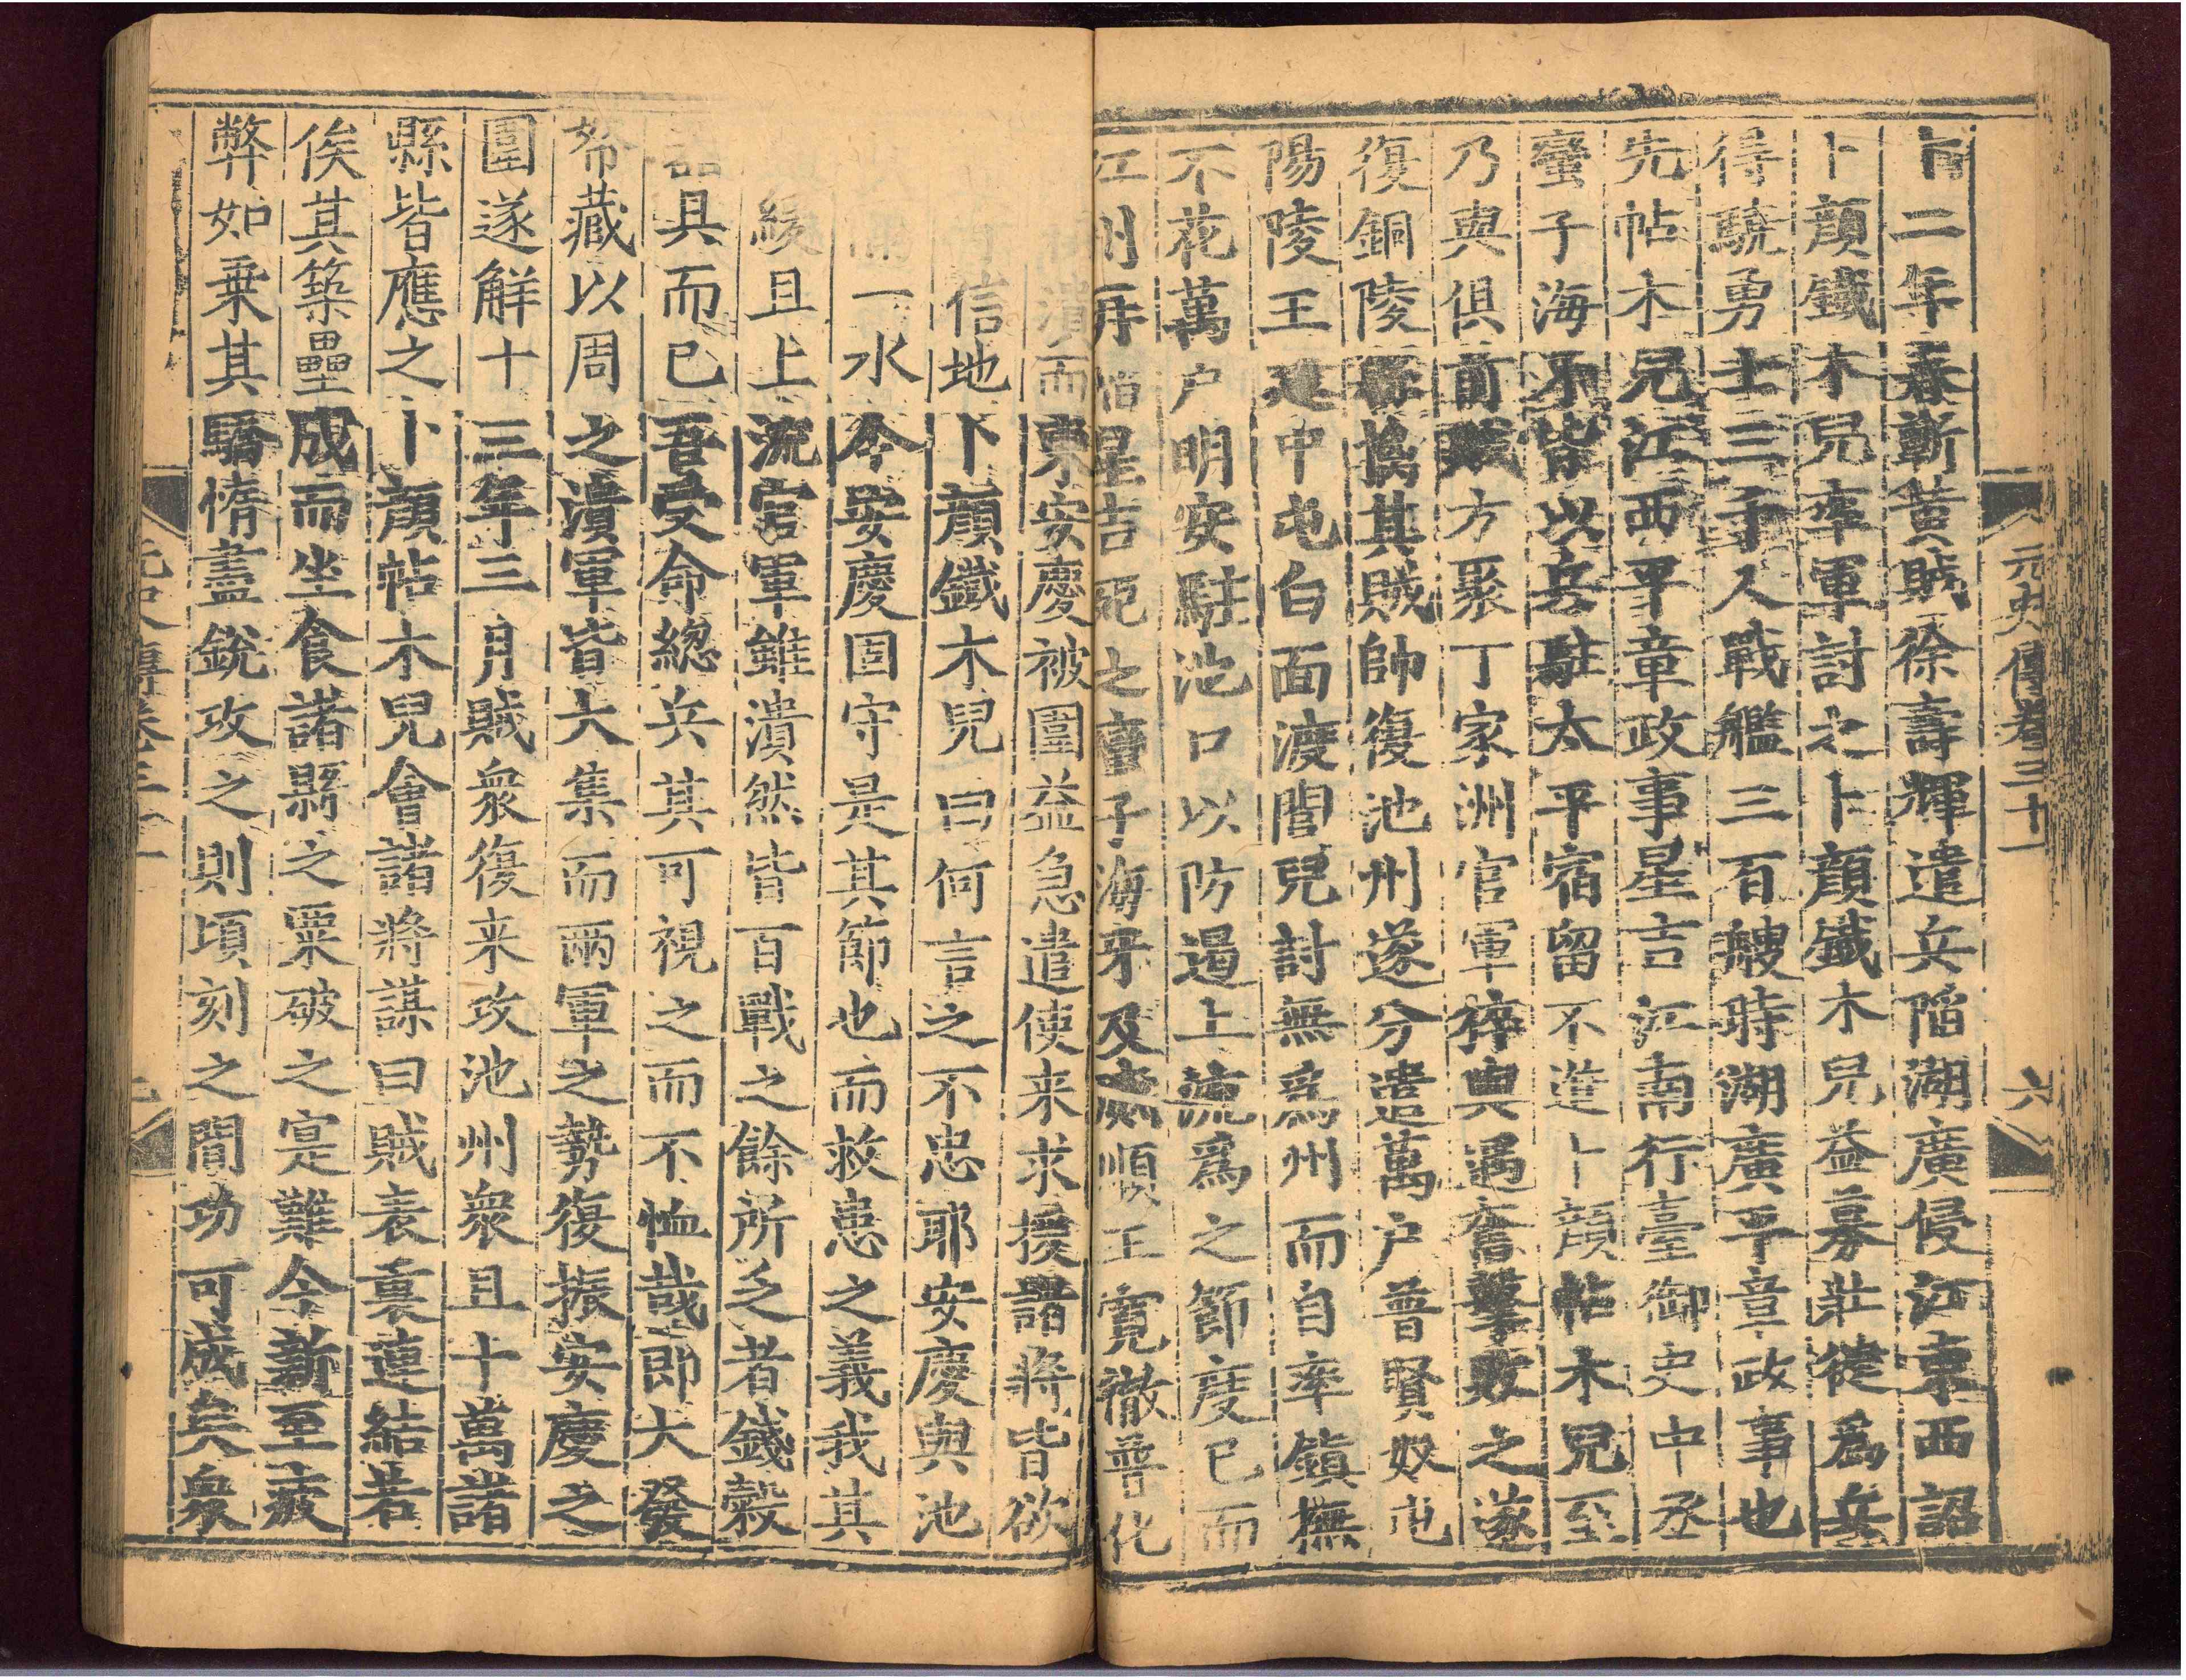 元史傳卷三十一
六
十二年春蘄黃賊徐壽輝遣兵陷湖廣侵江東西詔
卜顏鐵木兒率軍討之卜顏鐵木兒益募壯徤爲兵
得驍勇士三千人戰艦三百艘時湖廣平章政事也
先帖木兒江西平章政事星吉江南行臺御史中丞
蠻子海牙皆以兵駐太平宿留不進卜顏帖木兒至
乃與俱前賊方聚丁家洲官軍猝與遇奮擊敗之遂
復銅陵縣擒其賊帥復池州遂分遣萬户普賢奴屯
陽陵王建中屯白面渡閭兒討無爲州而自率鎮撫
不花萬户明安駐池口以防遏上流爲之節度已而
江州再陷星吉死之蠻子海牙及威順王寛徹普化
潰而東安慶被圍益急遣使来求援諸將皆欲
信地卜顏鐵木兒曰何言之不忠耶安慶與池
一水今安慶固守是其節也而救患之義我其
緩且上流官軍雖潰然皆百戰之餘所乏者錢穀
器具而已吾受命總兵其可視之而不恤哉即大發
帑藏以周之潰軍皆大集而兩軍之勢復振安慶之
圍遂解十三年三月賊衆復来攻池州衆且十萬諸
縣皆應之卜顏帖木兒會諸將謀曰賊表裏連結若
俟其築壘成而坐食諸縣之粟破之寔難今新至疲
弊如乗其驕惰盡銳攻之則頃刻之間功可成矣衆